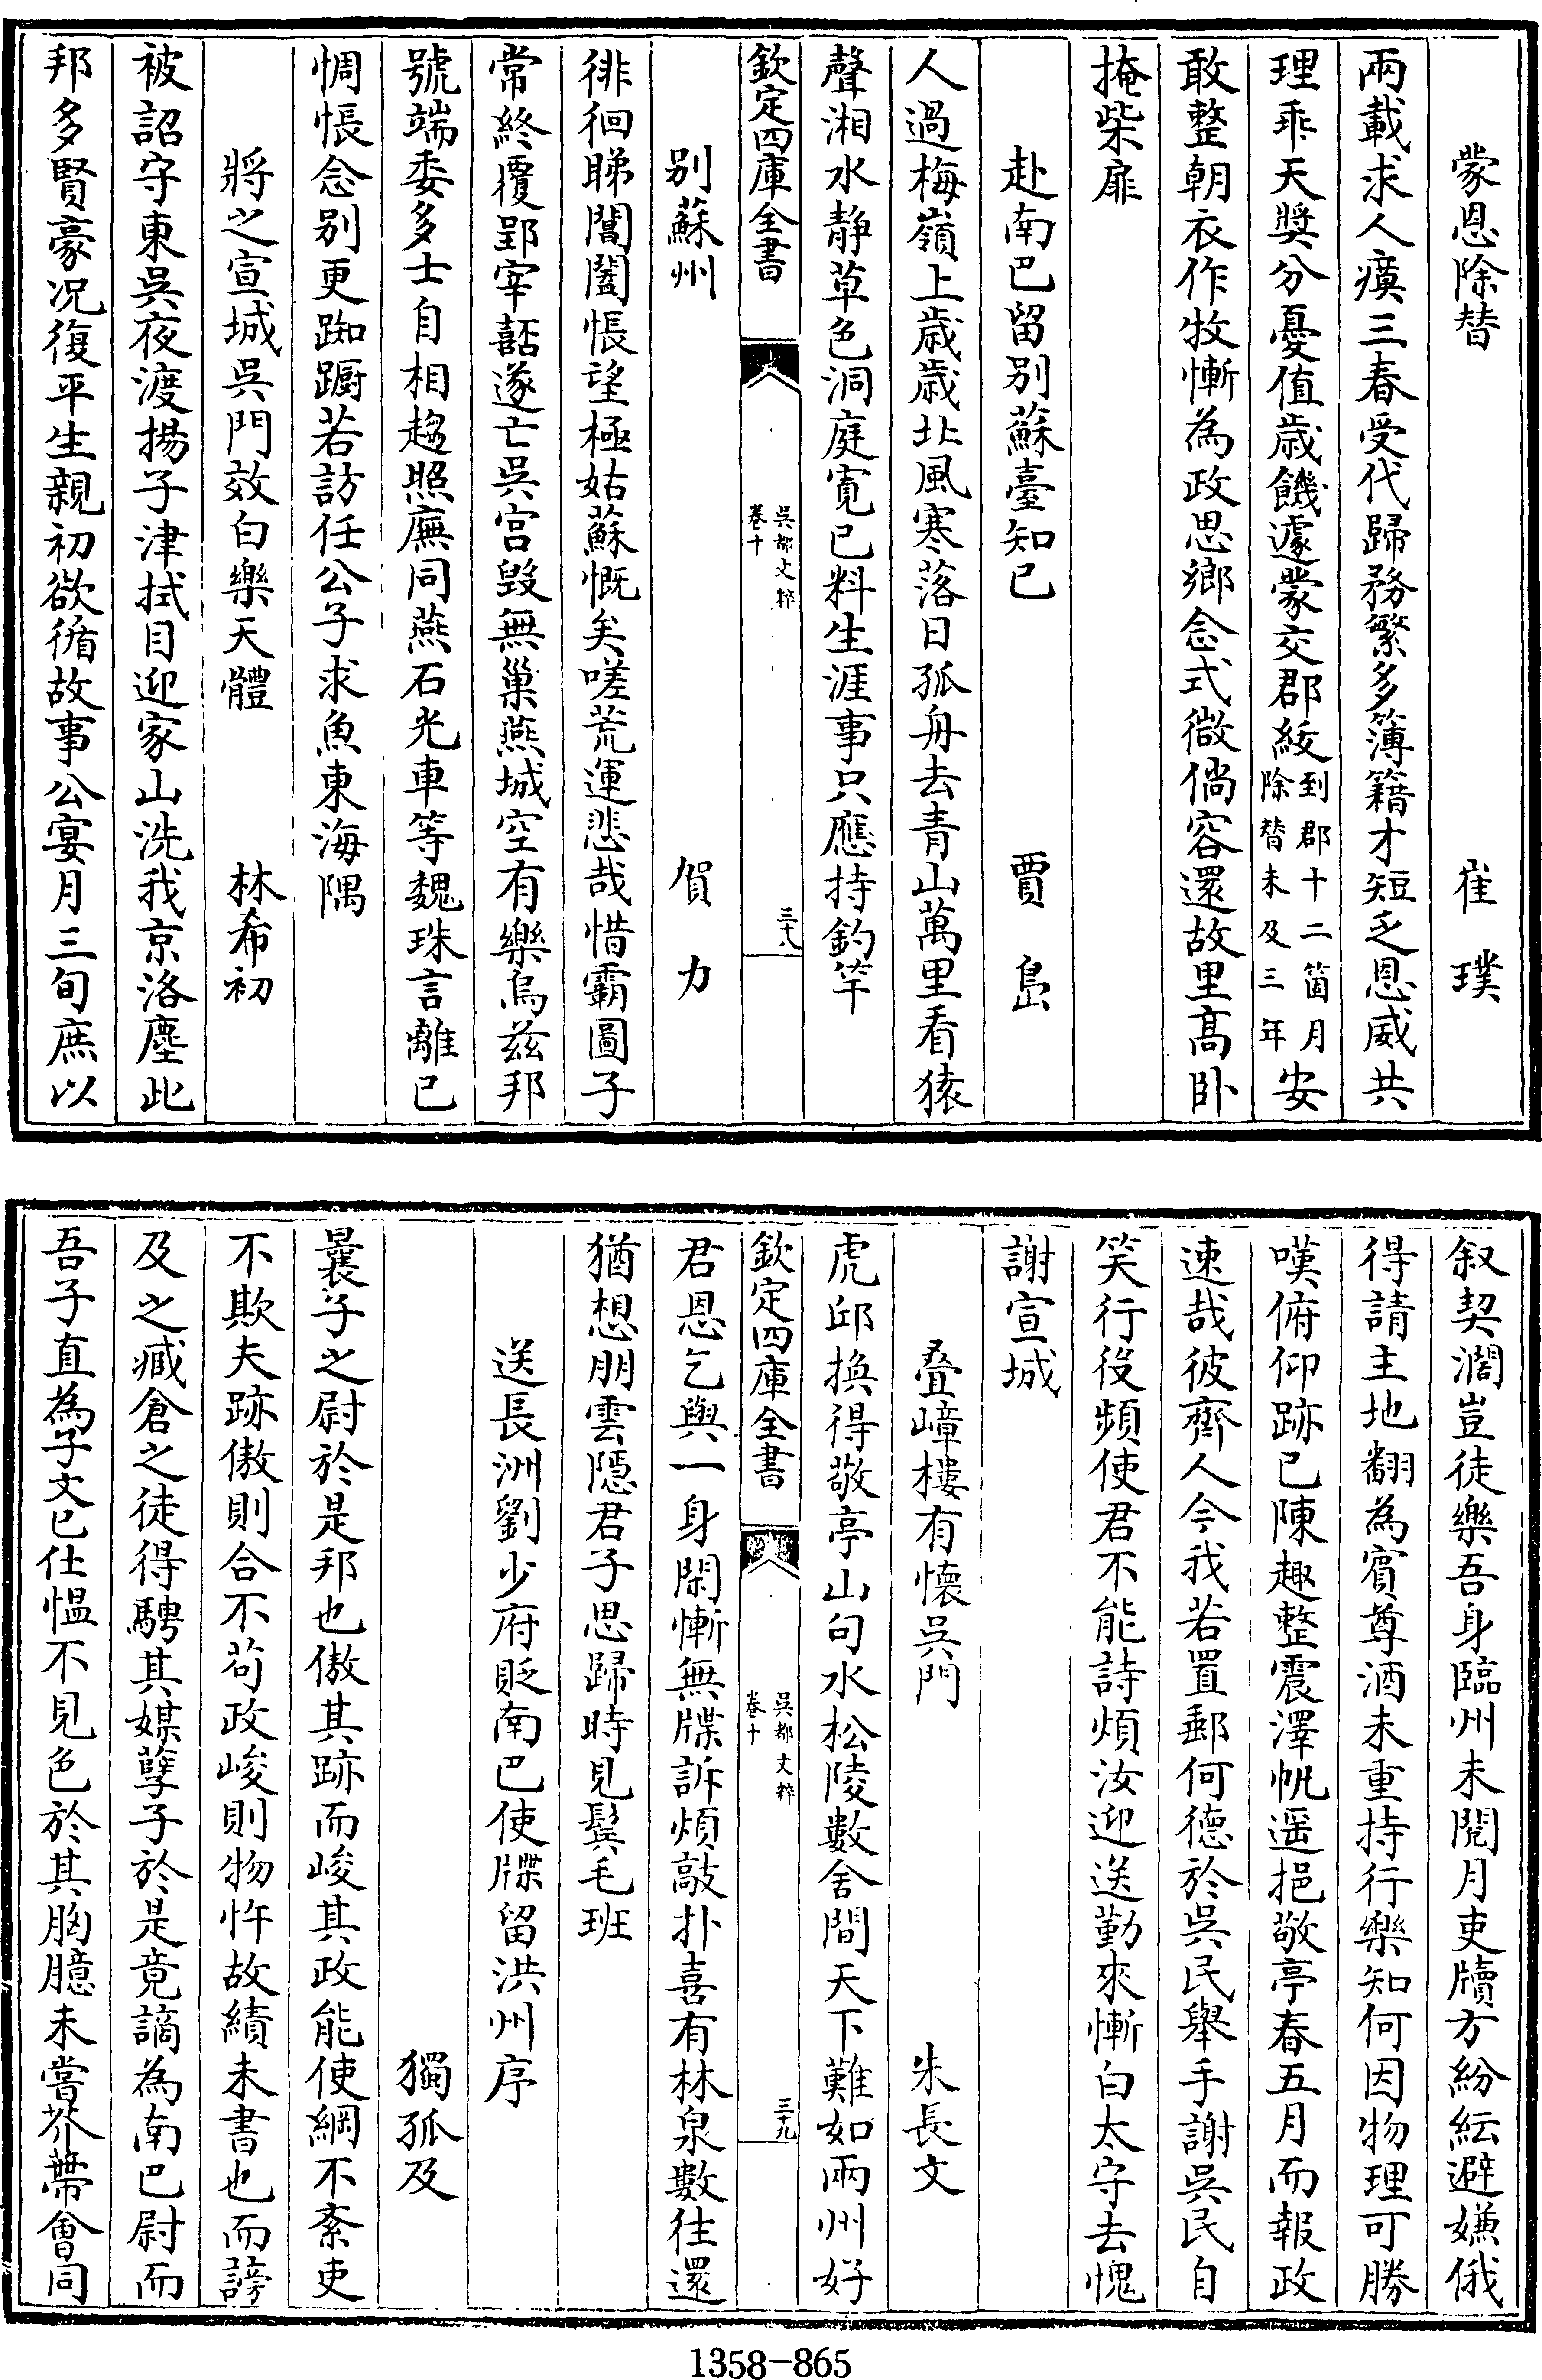 蒙恩除替　崔璞
兩載求人瘼三春受代歸務繁多簿籍才短乏恩威共
理乖天奬分憂值歲饑遽蒙交郡綬到郡十二箇月除替未及三年安
敢整朝衣作牧慚為政思鄉念式微倘容還故里高卧
掩柴扉
赴南巴留别蘇臺知已　賈島
人過梅嶺上歲歲北風寒落日孤舟去青山萬里看猿
聲湘水静草色洞庭寛已料生涯事只應持釣竿
欽定四庫全書　吳都文粹卷十　三十八
别蘇州　賀力
徘徊睇閶闔悵望極姑蘇慨矣嗟荒運悲哉惜霸圖子
常終覆郢宰嚭遂亡吳宫毀無巢燕城空有樂烏兹邦
號端委多士自相趨照廡同燕石光車等魏珠言離已
惆悵念别更踟蹰若訪任公子求魚東海隅
將之宣城吳門效白樂天體　林希初
被詔守東吳夜渡揚子津拭目迎家山洗我京洛塵此
邦多賢豪况復平生親初欲循故事公宴月三旬庶以
叙契濶豈徒樂吾身臨州未閱月吏牘方紛紜避嫌俄
得請主地翻為賓尊酒未重持行樂知何因物理可勝
嘆俯仰跡已陳趣整震澤帆遥挹敬亭春五月而報政
速哉彼齊人今我若置郵何德於吳民舉手謝吳民自
笑行役頻使君不能詩煩汝迎送勤來慚白太守去愧
謝宣城
叠嶂樓有懷吳門　朱長文
虎邱換得敬亭山句水松陵數舍間天下難如兩州好
欽定四庫全書　吳都文粹卷十　三十九
君恩乞與一身閑慚無牒訴煩敲扑喜有林泉數往還
猶想朋雲隱君子思歸時見鬂毛班
送長洲劉少府貶南巴使牒留洪州序
獨孤及
曩子之尉於是邦也傲其跡而峻其政能使綱不紊吏
不欺夫跡傲則合不苟政峻則物忤故績未書也而謗
及之臧倉之徒得騁其媒孽子於是竟謫為南巴尉而
吾子直為子文已仕愠不見色於其胸臆未嘗芥蔕㑹同
1358-865